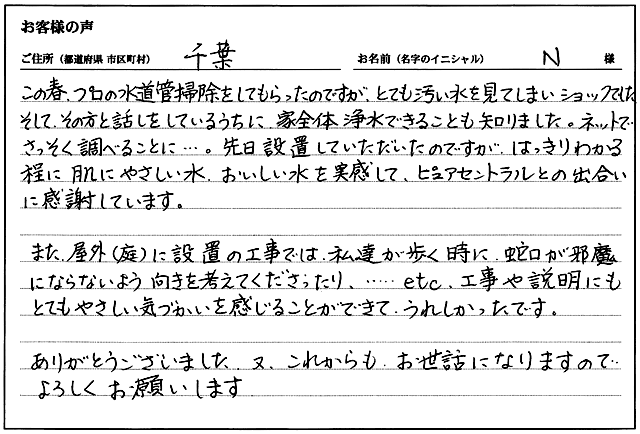 お客様の声
ご住所（都道府県 市区町村） 千葉 お名前（名字のイニシャル） N 様
この春、プロの水道管掃除をしてもらったのですが、とても汚い水を見てしまいショックでした
そして、その方と話しをしているうちに、家全体浄水できることも知りました。ネットで
さっそく調べることに…。先日設置していただいたのですが、はっきりわかる
程に肌にやさしい水、おいしい水を実感して、ピュアセントラルとの出合い
に感謝しています。
また、屋外(庭)に設置の工事では、私達が歩く時に、蛇口が邪魔
にならないよう向きを考えてくださったり、……etc、工事や説明にも
とてもやさしい気づかいを感じることができて、うれしかったです。
ありがとうございました。又、これからも、お世話になりますので
よろしくお願いします